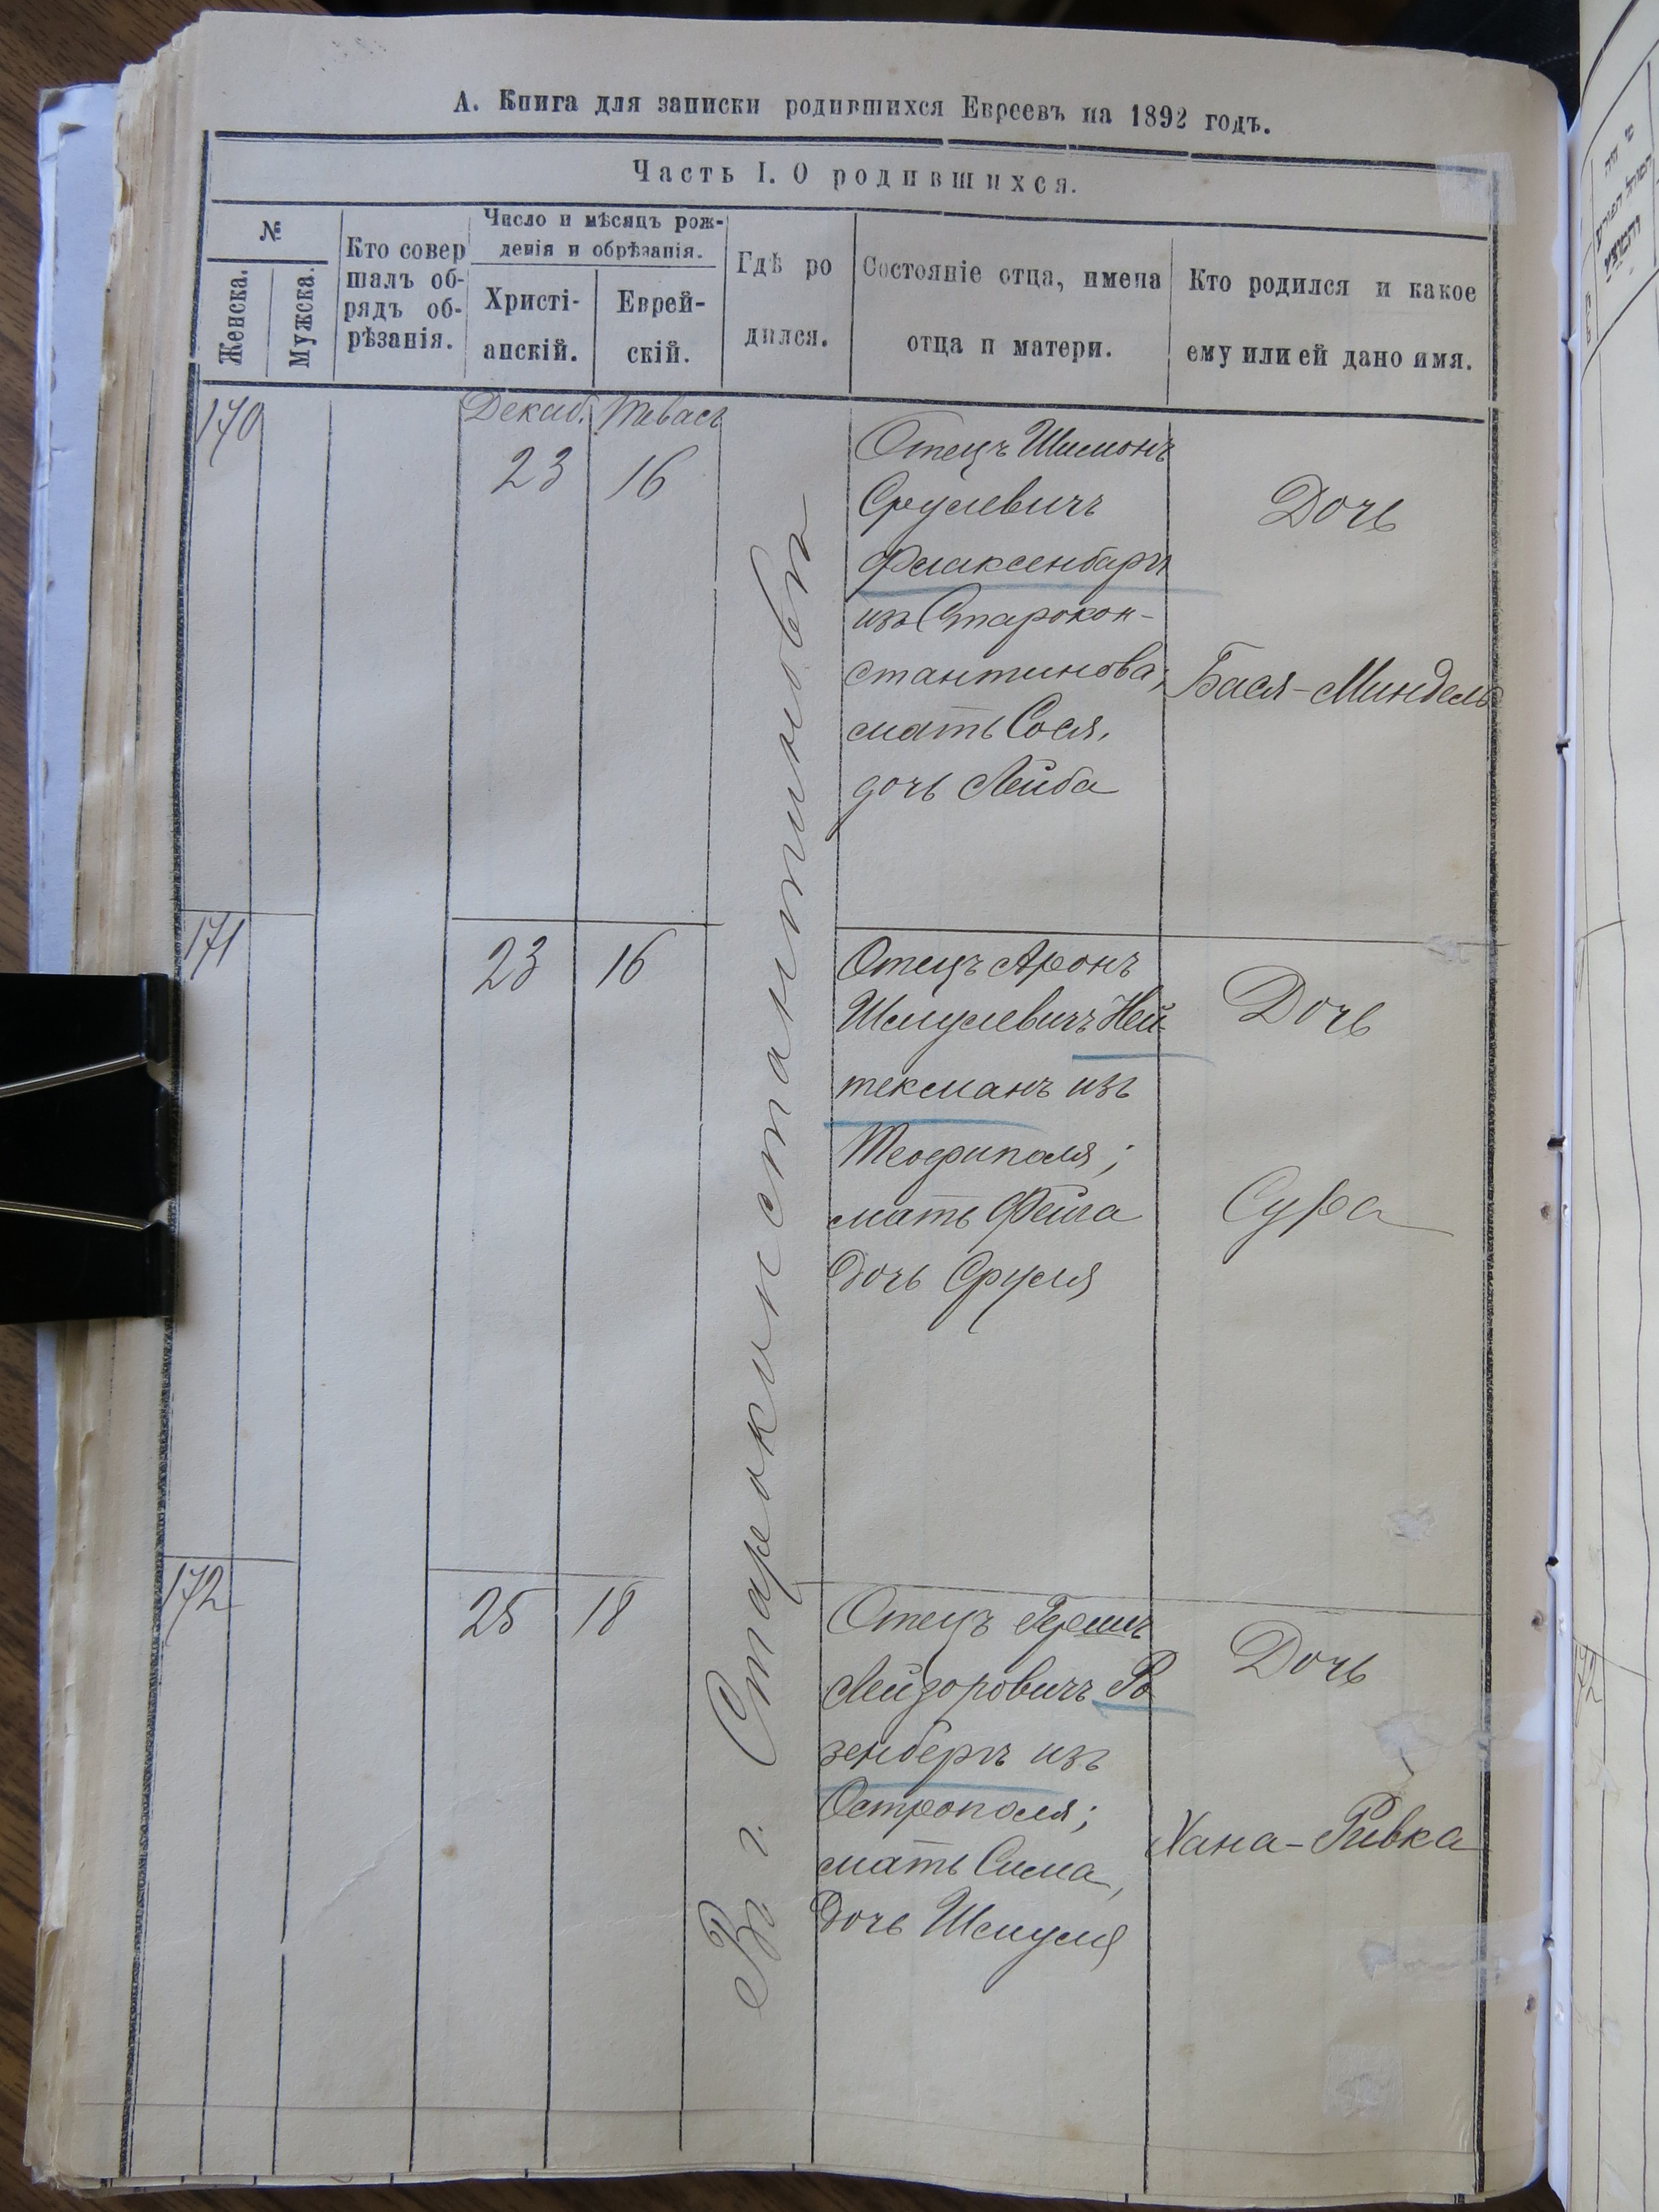 А. Книга для записки родившихся Евреевъ на 1892 годъ.
Часть I. О родившихся.
№
Женска.
Мужска.
Кто совер
шалъ об-
рядъ об-
рѣзанія.
Число и мѣсяцъ рож-
денія и обрѣзанія.
Христі-
анскій.
Еврей-
скій.
Гдѣ ро
дился.
Состояніе отца, имена
отца и матери.
Кто родился и какое
ему или ей дано имя.
170
Декаб.
Тевасъ
23
16
Въ г. Староконстантиновѣ
Отецъ Шимонъ
Срулевичъ
Флаксенбаргъ
изъ Старокон-
стантинова;
мать Сося,
дочь Лейба
Дочь
Бася-Миндель
171
23
16
Отецъ Аронъ
Шмулевичъ Ней-
тексманъ изъ
Теофиполя;
мать Фейга
дочь Сруля
Дочь
Сура
172
25
18
Отецъ Гершъ
Лейзоровичъ Ро
зенбергъ изъ
Острополя;
мать Сима,
дочь Шмуля
Дочь
Хана-Ривка